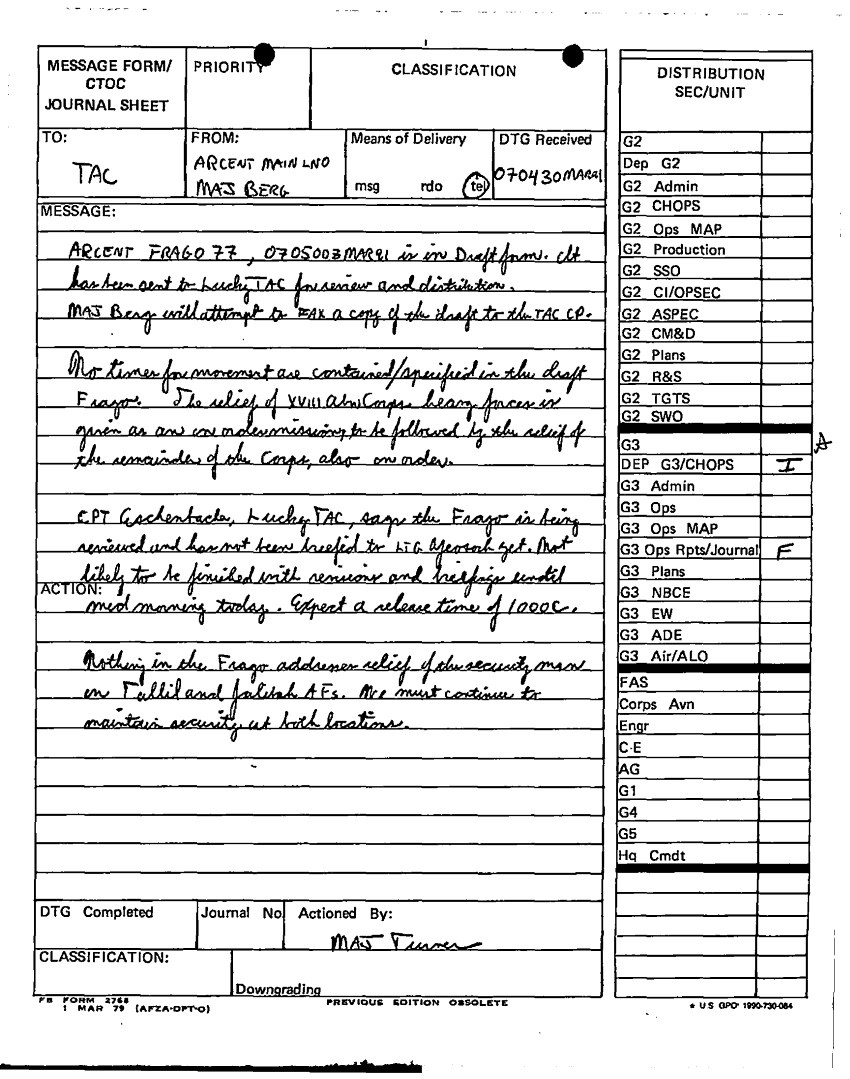 MESSAGE FORM/
CTOC
JOURNAL SHEET
PRIORITY
CLASSIFICATION
TO:
TAC
FROM:
ARCENT MAIN LNO
MAJ BERG
Means of Delivery
msg rdo tel
DTG Received
070430MAR91
MESSAGE:
ARCENT FRAGO 77, 070500ZMAR91 is in Draft form. It
has been sent to Lucky TAC for review and distribution.
MAJ Berg will attempt to FAX a copy of the draft to the TAC CP.
No times for movement are contained/specified in the draft
Frago. The relief of XVIII Abn Corps heavy forces is
given as an on order mission, to be followed by the relief of
the remainder of the Corps, also on order.
CPT Lucky TAC, says the Frago is being
reviewed and has not been briefed to LTG yet. Not
likely to be finished with revisions and briefings until
ACTION:
mid morning today. Expect a release time of 1000C.
Nothing in the Frago addresses relief of the security msn
on Tallil and Jalibah AFs. We must continue to
maintain security at both locations.
DTG Completed
Journal No
Actioned By:
MAJ Turner
CLASSIFICATION:
Downgrading
FB FORM 2768
1 MAR 79 (AFZA-DPT-O)
PREVIOUS EDITION OBSOLETE
DISTRIBUTION
SEC/UNIT
G2
Dep G2
G2 Admin
G2 CHOPS
G2 Ops MAP
G2 Production
G2 SSO
G2 CI/OPSEC
G2 ASPEC
G2 CM&D
G2 Plans
G2 R&S
G2 TGTS
G2 SWO
G3 A
DEP G3/CHOPS I
G3 Admin
G3 Ops
G3 Ops MAP
G3 Ops Rpts/Journal F
G3 Plans
G3 NBCE
G3 EW
G3 ADE
G3 Air/ALO
FAS
Corps Avn
Engr
C-E
AG
G1
G4
G5
Hq Cmdt
* U.S GPO' 1990-730-084